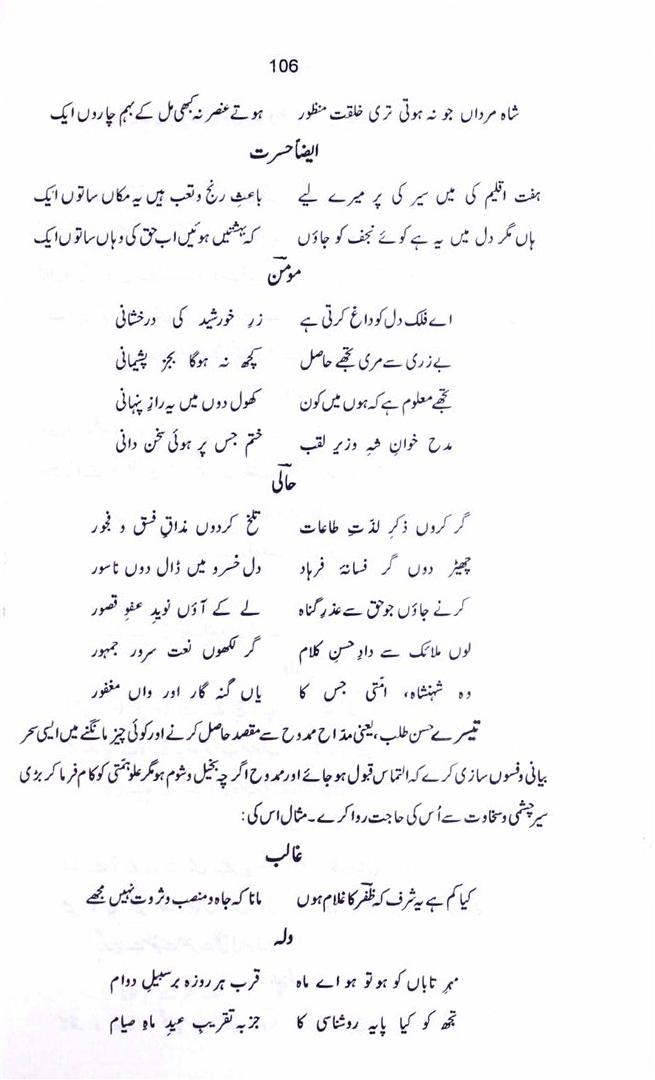 106
شاہ مرداں جو نہ ہوتی تری خلقت منظور ہوتے عنصر نہ کبھی مل کے بہم چاروں ایک
ایضاً حسرت
ہفت اقلیم کی میں سیر کی پر میرے لیے باعثِ رنج و تعب ہیں یہ مکاں ساتوں ایک
ہاں مگر دل میں یہ ہے کوئے نجف کو جاؤں کہ بہشتیں ہوئیں اب حق کی وہاں ساتوں ایک
مومن
اے فلک دل کو داغ کرتی ہے زرِ خورشید کی درخشانی
بے زری سے مری تجھے حاصل کچھ نہ ہوگا بجز پشیمانی
تجھے معلوم ہے کہ ہوں میں کون کھول دوں میں یہ رازِ پنہانی
مدح خوانِ شہِ وزیر لقب ختم جس پر ہوئی سخن دانی
حالی
گر کروں ذکرِ لذّتِ طاعات تلخ کردوں مذاقِ فسق و فجور
چھیڑ دوں گر فسانۂ فرہاد دل خسرو میں ڈال دوں ناسور
کرنے جاؤں جو حق سے عذرِ گناہ لے کے آؤں نویدِ عفوِ قصور
لوں ملائک سے دادِ حسنِ کلام گر لکھوں نعت سرور جمہور
وہ شہنشاہ، امّتی جس کا یاں گنہ گار اور واں مغفور
تیسرے حسن طلب، یعنی مدّاح ممدوح سے مقصد حاصل کرنے اور کوئی چیز مانگنے میں ایسی سحر
بیانی و فسوں سازی کرے کہ التماس قبول ہو جائے اور ممدوح اگرچہ بخیل و شوم ہو مگر علو ہمتی کو کام فرما کر بڑی
سیر چشمی و سخاوت سے اُس کی حاجت روا کرے۔ مثال اس کی:
غالب
کیا کم ہے یہ شرف کہ ظفر کا غلام ہوں مانا کہ جاہ و منصب و ثروت نہیں مجھے
ولہ
مہرِ تاباں کو ہو تو ہو اے ماہ قرب ہر روزہ بر سبیلِ دوام
تجھ کو کیا پایہ روشناسی کا جز بہ تقریبِ عیدِ ماہِ صیام